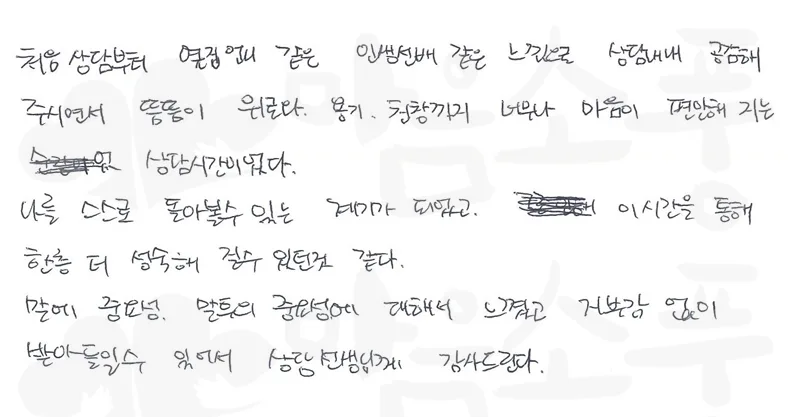 처음 상담부터 옆집언니 같은 인생선배 같은 느낌으로 상담내내 공감해
주시면서 틈틈이 위로와. 용기. 칭찬까지 너무나 마음이 편안해 지는
상담시간이었다.
나를 스스로 돌아볼수 있는 계기가 되었고. 이시간을 통해
한층 더 성숙해 질수 있던것 같다.
말에 중요성. 말투의 중요성에 대해서 느꼈고 거부감 없이
받아들일수 있어서 상담선생님께 감사드린다.
마음소풍
마음소풍